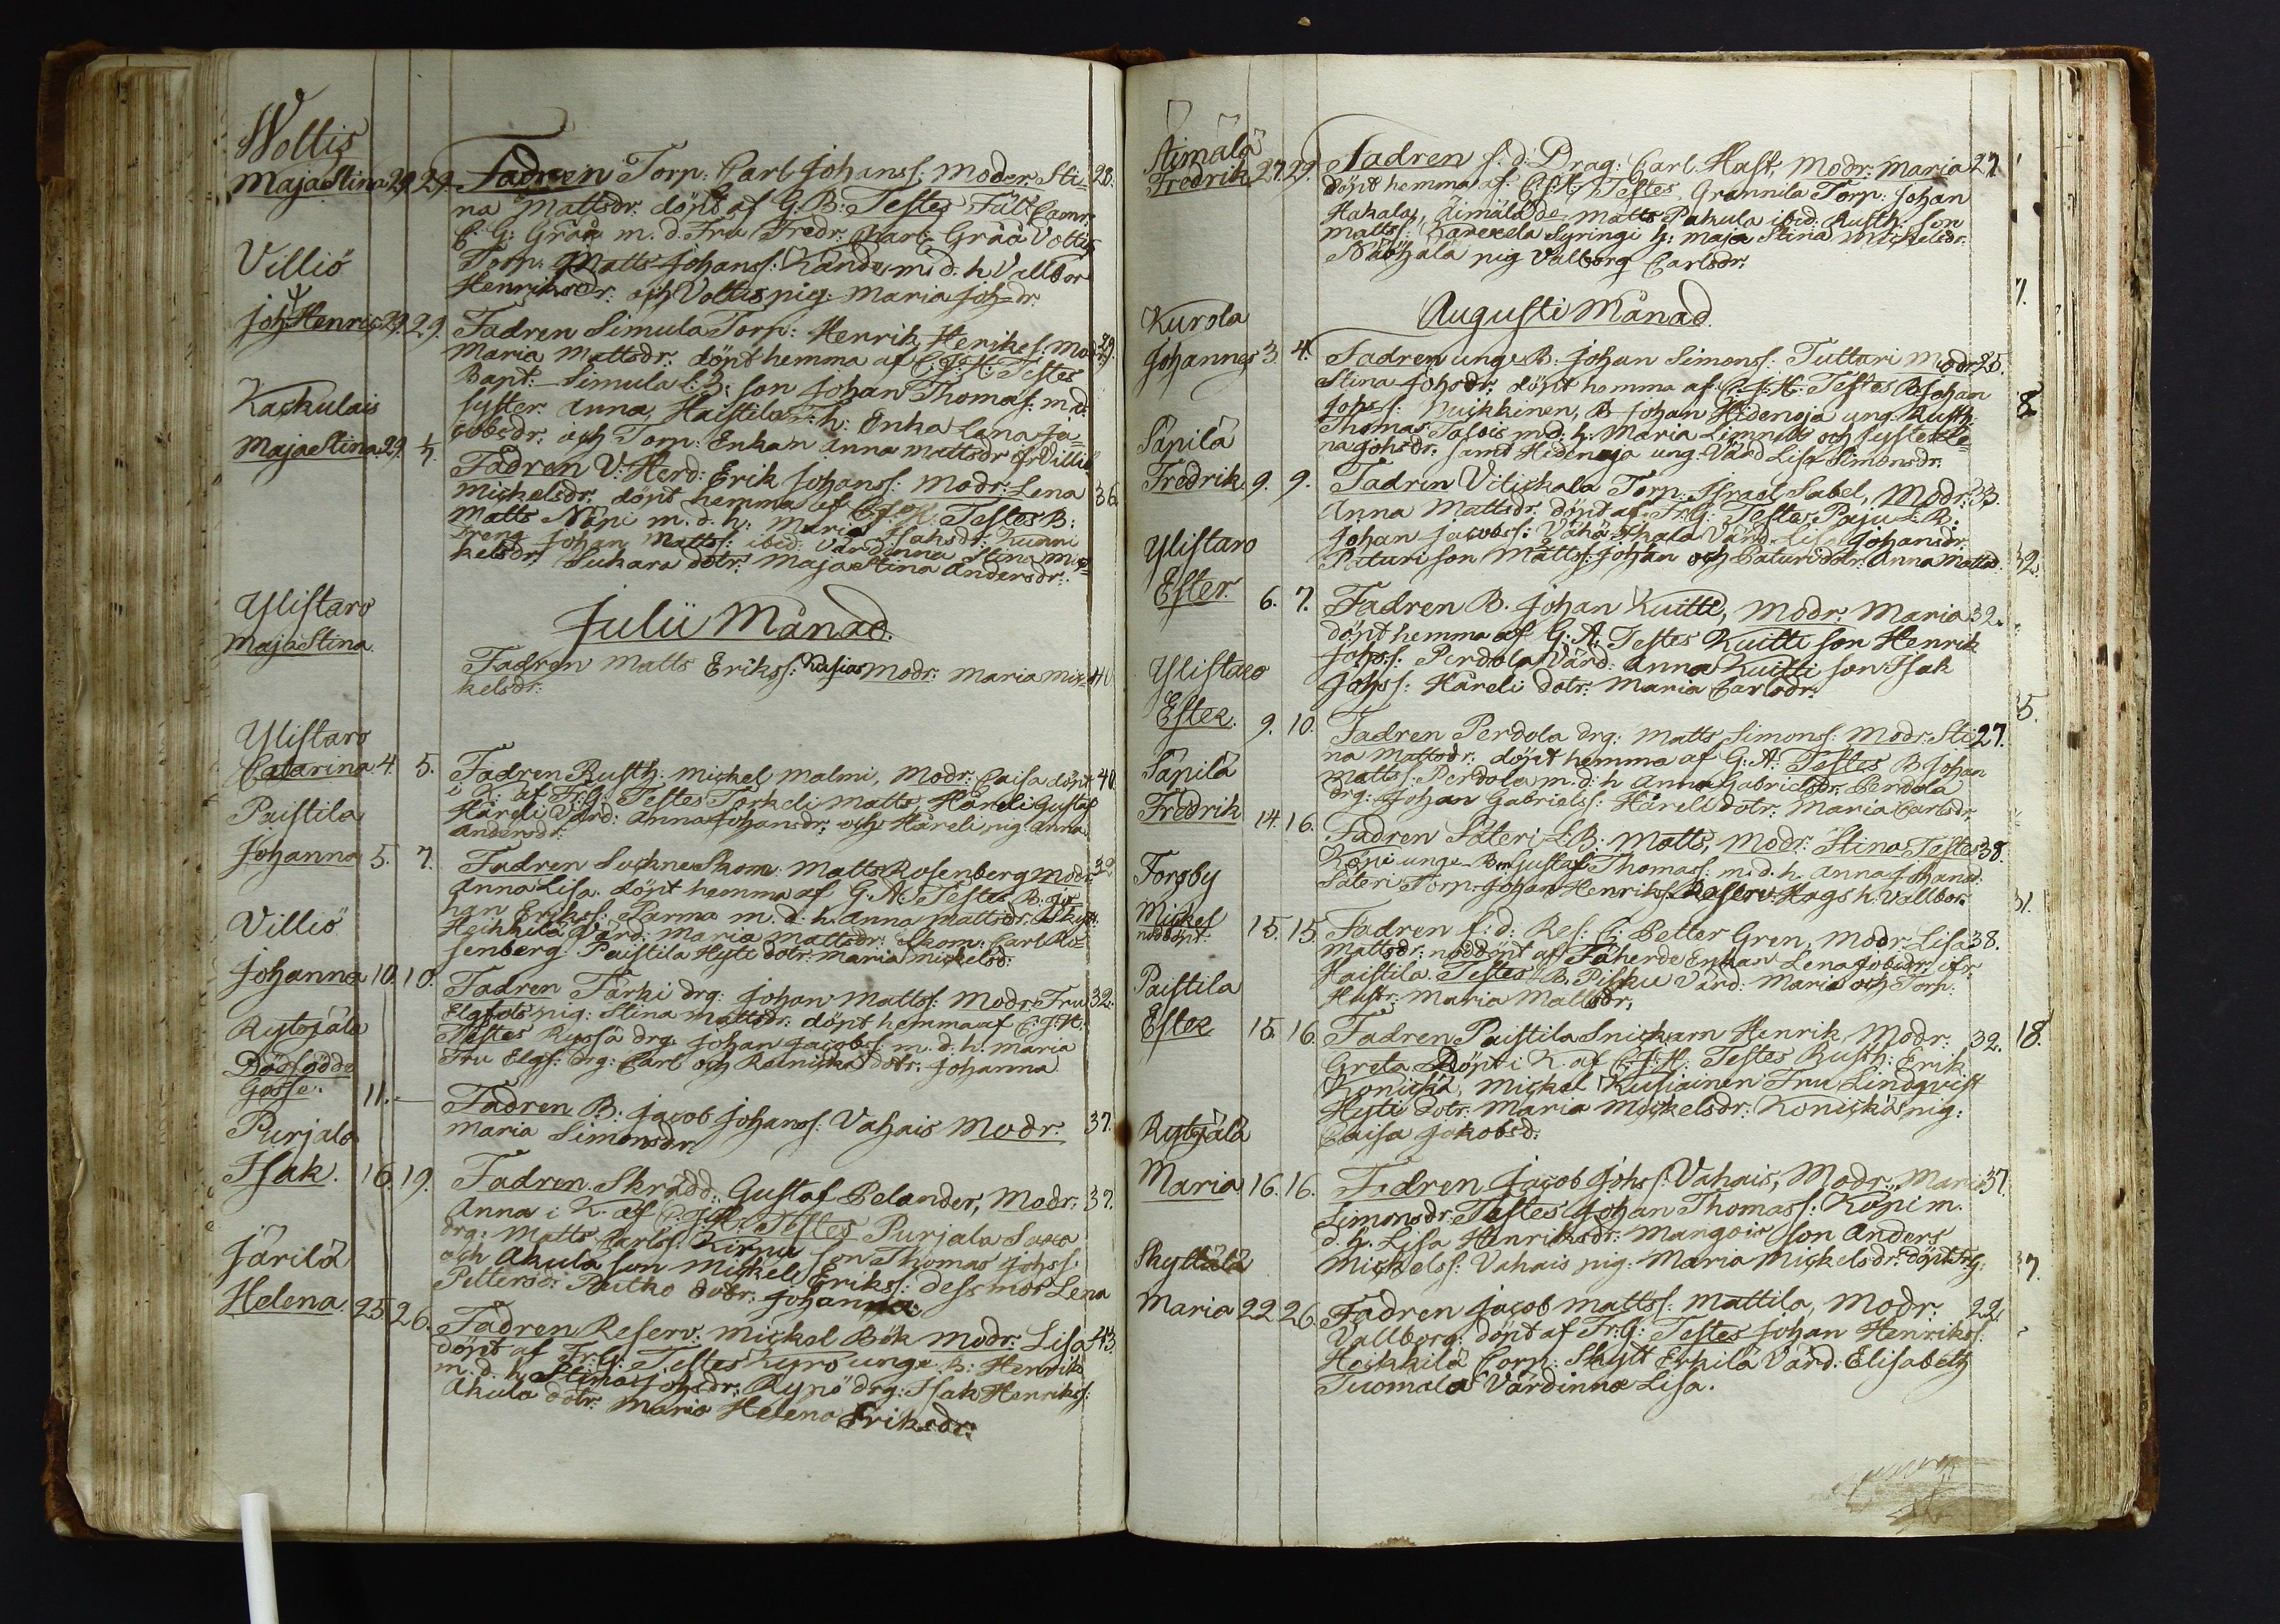 Wottis
Maja Stina 29. 29. Fadren Torp: Carl Johanss: Moder. Sti= 28.
na Mattsdr: döpt af G. B: Testes Fält Camr:
C. G: Gråå m. d. Fru Fredr: Charl: Gråå Vottis
Torp: Matts Johanss: Kände m. d. h. Vallbor
Henriksdr: och Vottis pig: Maria Joh=dr.
Villiö
Joh: Henric 29. 29. Fadren Simula Torp: Henrik Herikss. Mod 29.
Maria Mattsdr: döpt hemma af C. J. H: Testes
Bapt: Simula L: B: son Johan Thomas: m. d:
syster Anna, Haistila h: Enka Lena Ja=
cobsdr: och Torp: Enkan Anna Mattsdr fr Villiö
Kackulais
Maja Stina 29. 4. Fadren V: Herd: Erik Johanss: Modr: Lena 36.
Mickelsdr: döpt hemma af C. J. H: Testes B:
Matts Näpi m. d. h: Maria Isaksdr: Kumni
Dreng Johan Matts: ibid: Värdinna Stina Mic=
kelsdr: Suhara dotr: Maja Stina Andersdr:
Julii Månad.
Ylistaro
Maja Stina. Fadren Matts Erikss: Kusias Modr: Maria Mic= 40
kelsdr:
Ylistaro
Catarina 4. 5. Fadren Rusth: Mickel Malmi, Modr: Caisa döpt 40.
i K: af Fr: G: Testes Torkeli Matts, Häreli Gustaf
Häreli Värd: Anna Johansdr: och Häreli pig: Anna
Andersdr:
Paistila
Johanna 5. 7. Fadren Sockne Skom: Matts Rosenberg Modr: 32
Anna Lisa. döpt hemma af G. A: Testes B: Jo
han Erikss: Parma m. d. h. Anna Mattsdr:
Heikkilä Värd: Maria Mattsdr: Skom: Carl Ro=
senberg: Paistila Hyti dotr: Maria Mickelsd:
Villiö
Johanna 10. 10. Fadren Tärki drg: Johan Matts: Modr. Fru 32.
Elgfots pig: Stina Mattsdr: döpt hemma af C. J. H:
Testes Ryssä drg: Johan Jacobs: m. d. h. Maria
Fru Elgf: drg: Carl och Reinickä dotr: Johanna
Rytsjälä
Dödfödde
Gosse. 11. — Fadren B: Jacob Johanss: Vahais Modr. 37.
Maria Simonsdr
Purjala
Isak. 16. 19. Fadren Skrädd: Gustaf Belander, Modr: 37.
Anna i K. af C. J. H: Testes Purjala Saxa
drg: Matts Carls: Kirpu son Thomas Johss:
och Akula son Mickel Erikss: dess mor Lena
Pettersdr: Pautko dotr: Johanna.
Järilä
Helena. 25 26. Fadren Reserv: Mickel Bök Modr: Lisa 43.
döpt af Fr: G: Testes Kyrö unge B: Henrik
m. d. h. Stina Johsdr: Rypö drg: Isak Henrikss:
Akula dotr: Maria Helena Eriksdr:
Äimälä
Fredrik 27. 29. Fadren f: d: Drag: Carl Hast, Modr: Maria 27.
döpt hemma af C. J. H: Testes Grannila Torp: Johan
Hakala, Äimälä de: Matts Pakula ibid: Rusth: son
Matts: Karekela Syringi h: Maja Stina Mickelsdr:
Näähjälä pig Valborg Carlsdr:
Augusti Månad.
Kurola
Johannes 3. 4. Fadren unge B: Johan Simonss: Tuttari Modr 25.
Stina Johsdr: döpt hemma af C. J. H: Testes B Johan
Johss: Nuikkinen, B. Johan Hidenoja ung. Rusth:
Thomas Talois m. d: h: Maria Limnell och syster Le=
na Johsdr: samt Hidenoja ung. Värd Lisa Simonsdr:
Säpilä
Fredrik 9. 9. Fadren Vilickala Torp: Israel Sabel, Modr: 33.
Anna Mattsdr: döpt af Fr: G: Testes Paju L: B:
Johan Jacobss: Vähä Ihala Värd. Lisa Johansdr
Paturi son Matts: Johan och Paturi dotr. Anna Mattsd
Ylistaro
Ester 6. 7. Fadren B. Johan Kuitti, Modr: Maria 32.
döpt hemma af G: A: Testes Kuitti son Henrik
Johss: Perdola Värd: Anna Kuitti son Isak
Johss: Häreli dotr: Maria Carlsdr:
Ylistaro
Ester. 9. 10. Fadren Perdola drg: Matts Simonss: Modr: Sti 27.
na Mattsdr: döpt hemma af G: A: Testes B Johan
Mattss: Perdola m. d: h Anna Gabrielsdr: Perdola
drg: Johan Gabrielss: Häreli dotr: Maria Carlsdr.
Säpilä
Fredrik 14. 16. Fadren Säteri L: B: Matts, Modr: Stina Testes 38.
Köpi unge B: Gustaf Thomass: m. d. h. Anna Johansd:
Säteri Torp: Johan Henrikss: Reserv: Hags h. Vallbor:
Forsby
Mickel
nöddöpt. 15. 15. Fadren f: d: Res: C: Petter Gren, Modr: Lisa 38.
Mattsdr: nöddöpt af Fäherde Enkan Lena Jobsdr: ifr.
Haistila. Testes B. Pisku Värd: Maria och Torp:
Hustr: Maria Mattsdr.
Paistila
Ester 15. 16. Fadren Paistila Snickarn Henrik, Modr: 32.
Greta Döpt i K. af C. J. H: Testes Rusth: Erik
Konickä, Mickel Kusiainen Fru Lindqvist
Hyti Dotr: Maria Mickelsdr: Konickäs pig:
Caisa Jakobsd:
Rytsjälä
Maria 16. 16. Fadren Jacob Johss: Vahais, Modr: Maria 37.
Simonsdr: Testes Johan Thomass: Köpi m.
d. h. Lisa Henriksdr: Mangois son Anders
Mickelss: Vahais pig: Maria Mickelsdr: döpt Fr. G:
Skyttälä
Maria 22 26. Fadren Jacob Mattss: Mattila, Modr: 22.
Vallborg: döpt af Fr: G: Testes Johan Henrikss:
Heikkilä Corp: Skytt Erkilä Värd: Elisabeth
Tuomala Värdinna Lisa.
7.
8.
32.
35.
31.
18.
37.